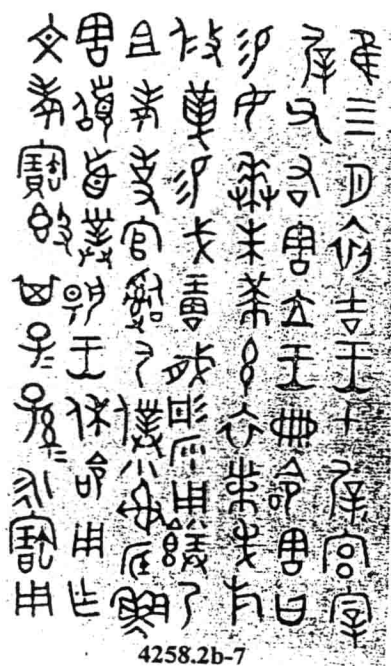 隹三月初吉王才屖宮宰
屖父右害立王冊命害曰
易女𠦪朱黃玄衣黹屯㫃
攸革易戈琱㦸彤沙用乃
且考事官𤔲尸僕小射底魚
害𩒨首對揚王休命用乍
文考寶𣪘其子=孫=永寶用
4258.2b-7